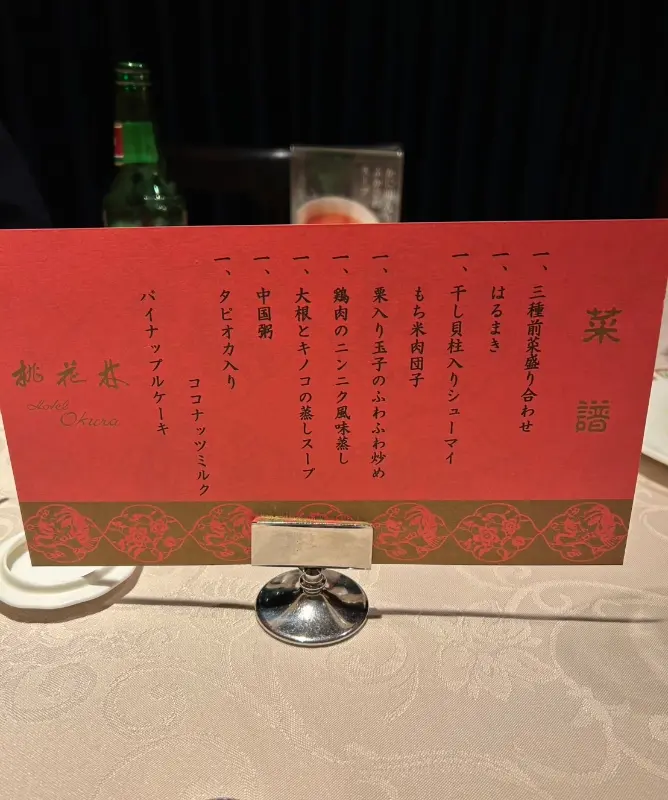 菜譜
一、三種前菜盛り合わせ
一、はるまき
一、干し貝柱入りシューマイ
もち米肉団子
一、栗入り玉子のふわふわ炒め
一、鶏肉のニンニク風味蒸し
一、大根とキノコの蒸しスープ
一、中国粥
一、タピオカ入り
ココナッツミルク
パイナップルケーキ
桃花林
Hotel
Okura